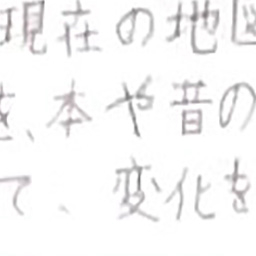 現在の地図
を、本や昔の
て、変化を